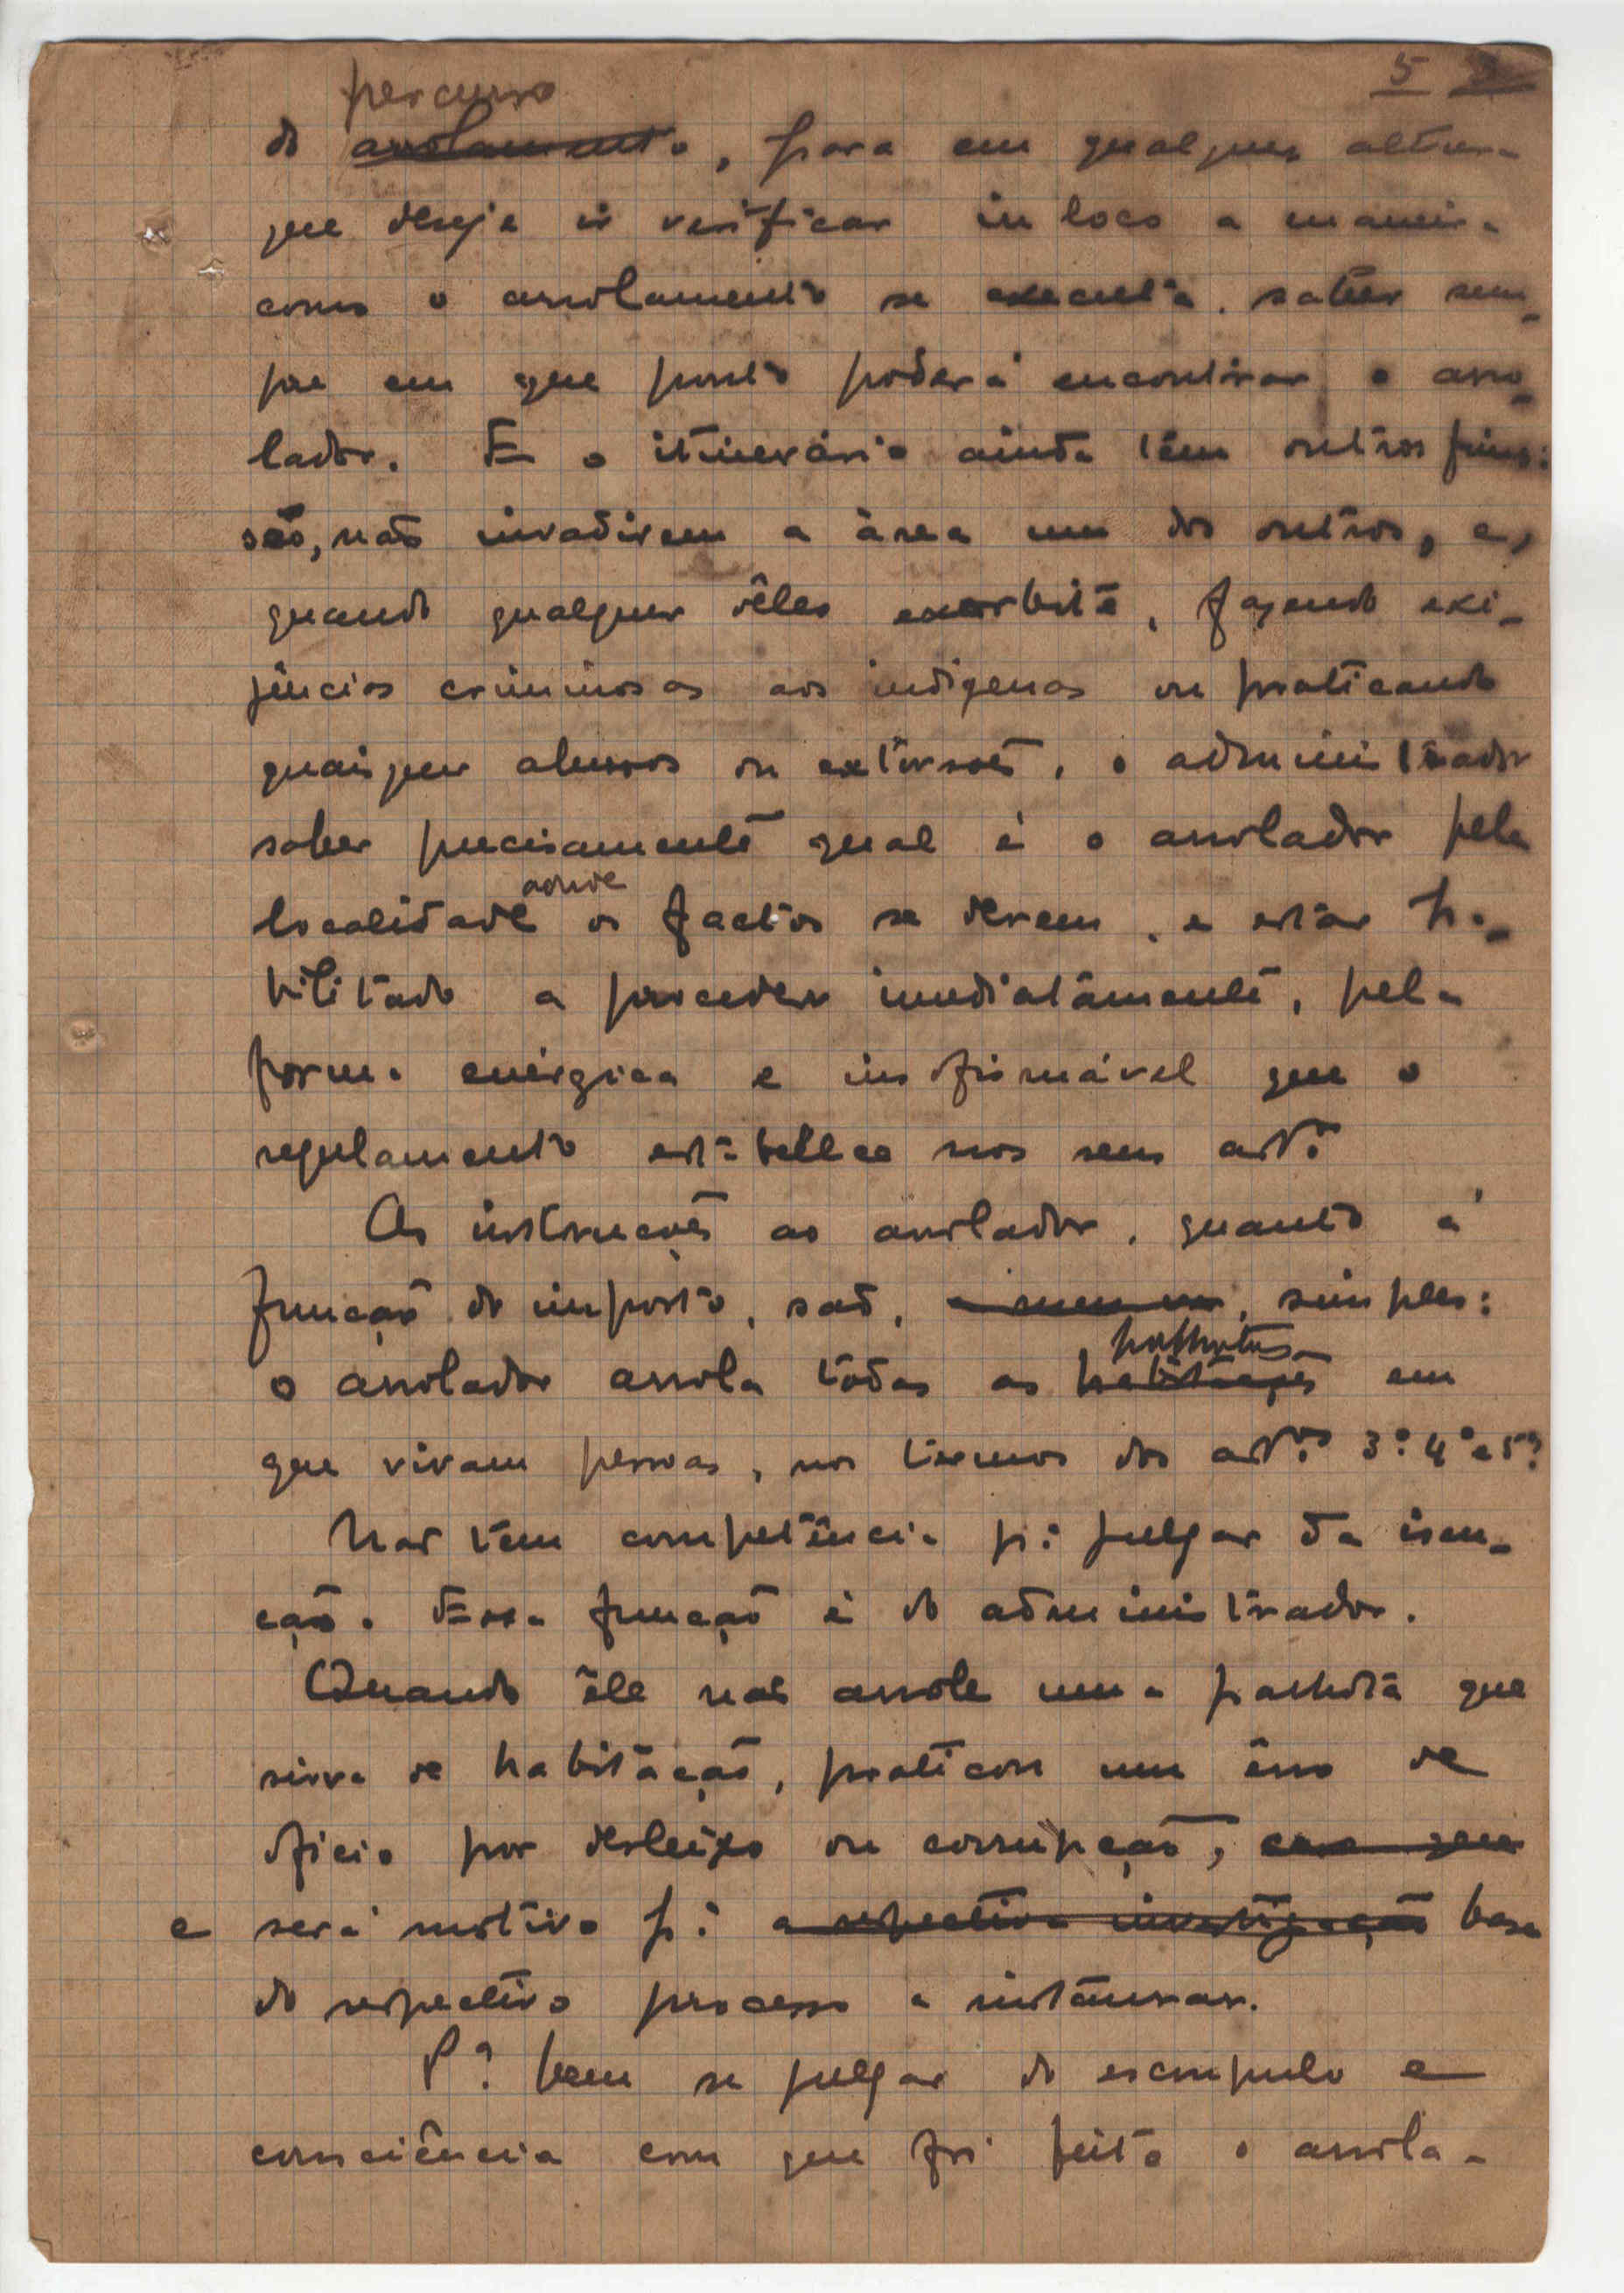 5
percurso
do arrolamento, para em qualquer altura
que deseje ir verificar in loco a maneira
como o arrolamento se executa, saber sem-
pre em que ponto poderá encontrar o arro-
lador. E o itinerário ainda têm outros fins:
são, não invadirem a àrea um dos outros, e,
quando qualquer dêles exorbite, fazendo exi-
jências criminosas aos indigenas ou praticando
quaisquer abusos ou extorsões, o administrador
saber precisamente qual é o arrolador pela
aonde
localidade os factos se derem, e estar ha-
bilitado a proceder imediatamente, pela
forma enérgica e insofismável que o
regulamento estabelece nos seus artos
As instruções ao arrolador, quanto á
função do imposto, são, simples:
palhotas
o arrolador arrola tôdas as habitações em
que vivam pessoas, nos termos dos artos 3º 4º e 5º
Não tem competência pª julgar da isen-
ção. Essa função é do administrador.
Quando êle não arrole uma palhota que
sirva de habitação, praticou um êrro de
oficio por desleixo ou corrupção, com que
e será motivo pª a respectiva investigação base
do respectivo processo a instaurar.
Pª bem se julgar do escrupulo e
consciência com que foi feito o arrola-